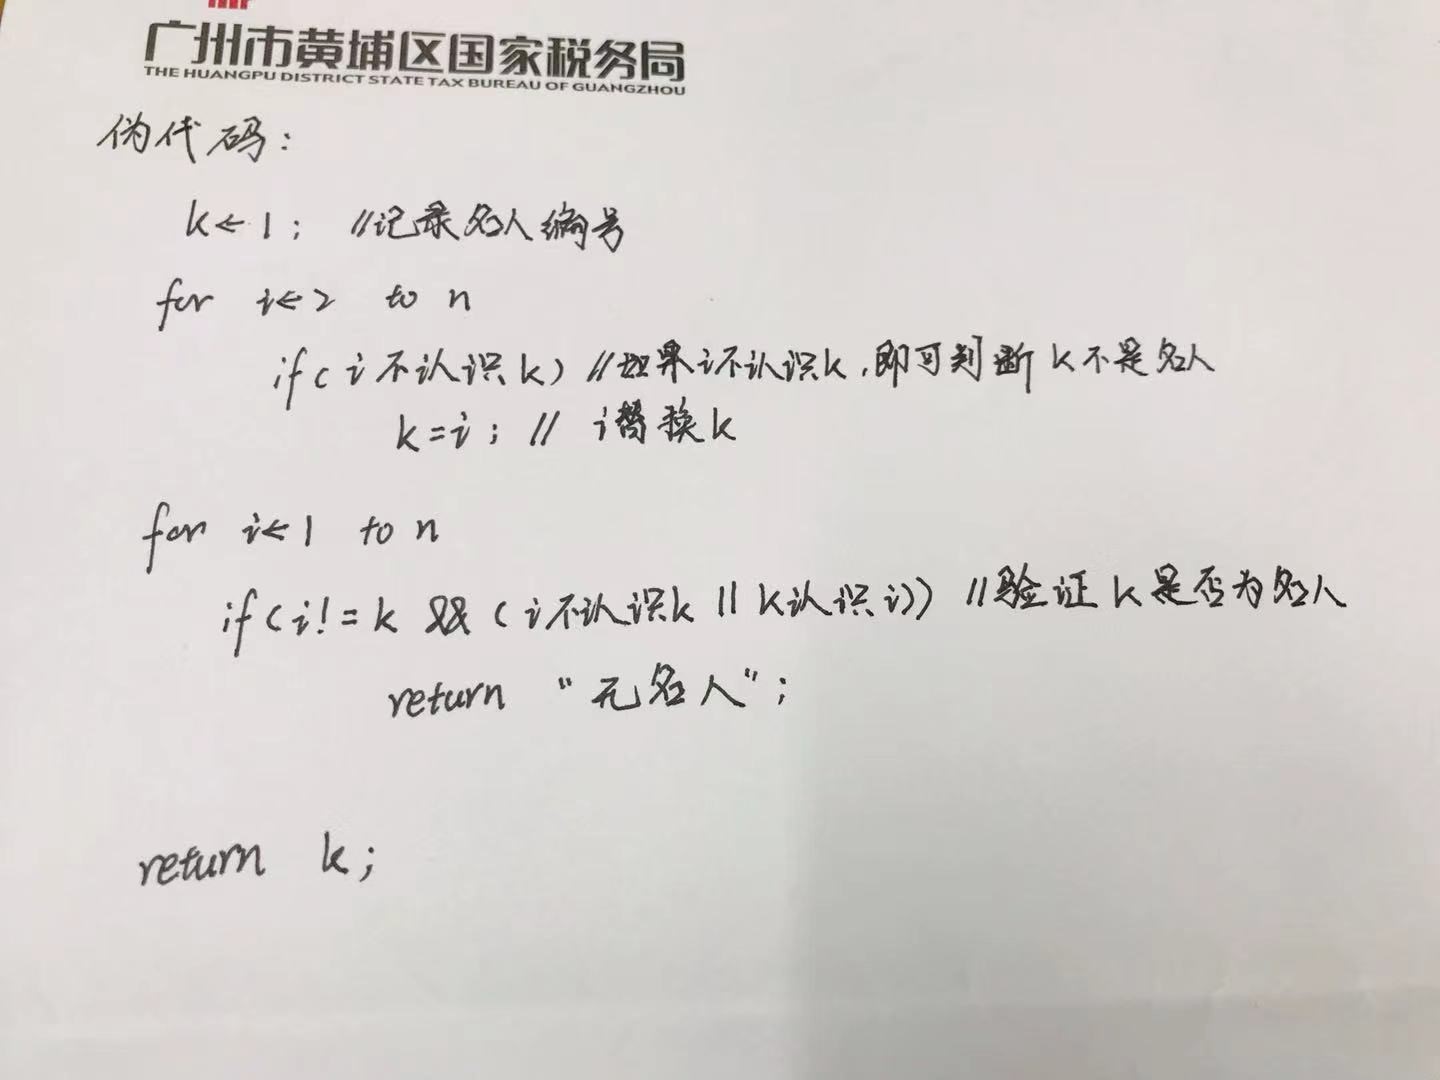 广州市黄埔区国家税务局
THE HUANGPU DISTRICT STATE TAX BUREAU OF GUANGZHOU
伪代码:
k←1; //记录名人编号
for i←2 to n
if(i不认识k) //如果i不认识k,即可判断k不是名人
k=i; // i替换k
for i←1 to n
if(i!=k && (i不认识k || k认识i)) //验证k是否为名人
return "无名人";
return k;